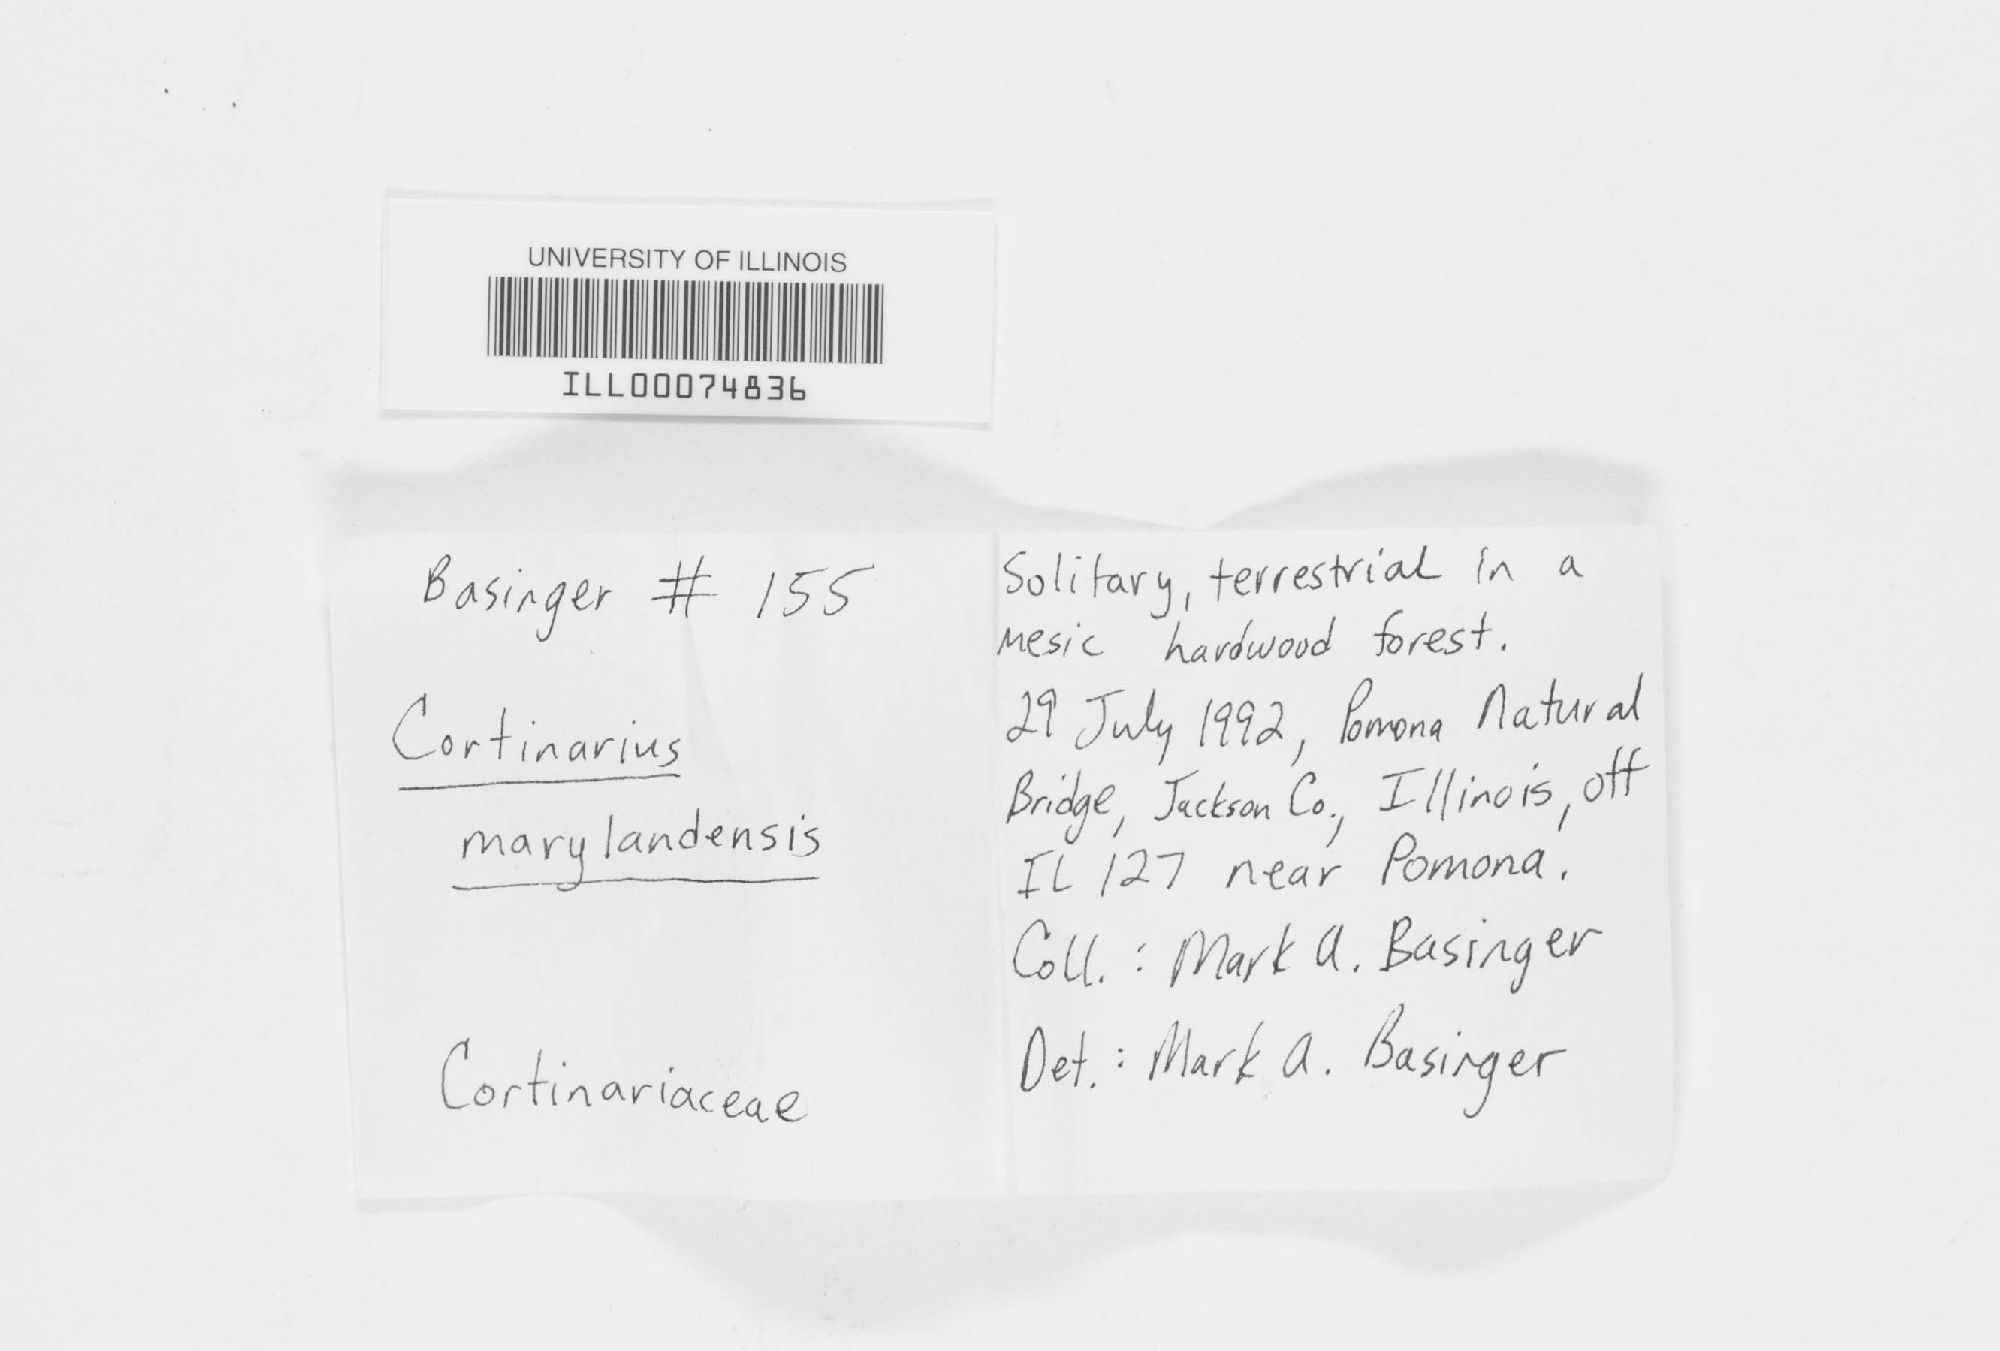 UNIVERSITY OF ILLINOIS
ILL00074836
Basinger # 155
Cortinarius
marylandensis
Cortinariaceae
Solitary, terrestrial in a
mesic hardwood forest.
29 July 1992, Pomona Natural
Bridge, Jackson Co., Illinois, off
IL 127 near Pomona.
Coll. : Mark A. Basinger
Det. : Mark A. Basinger